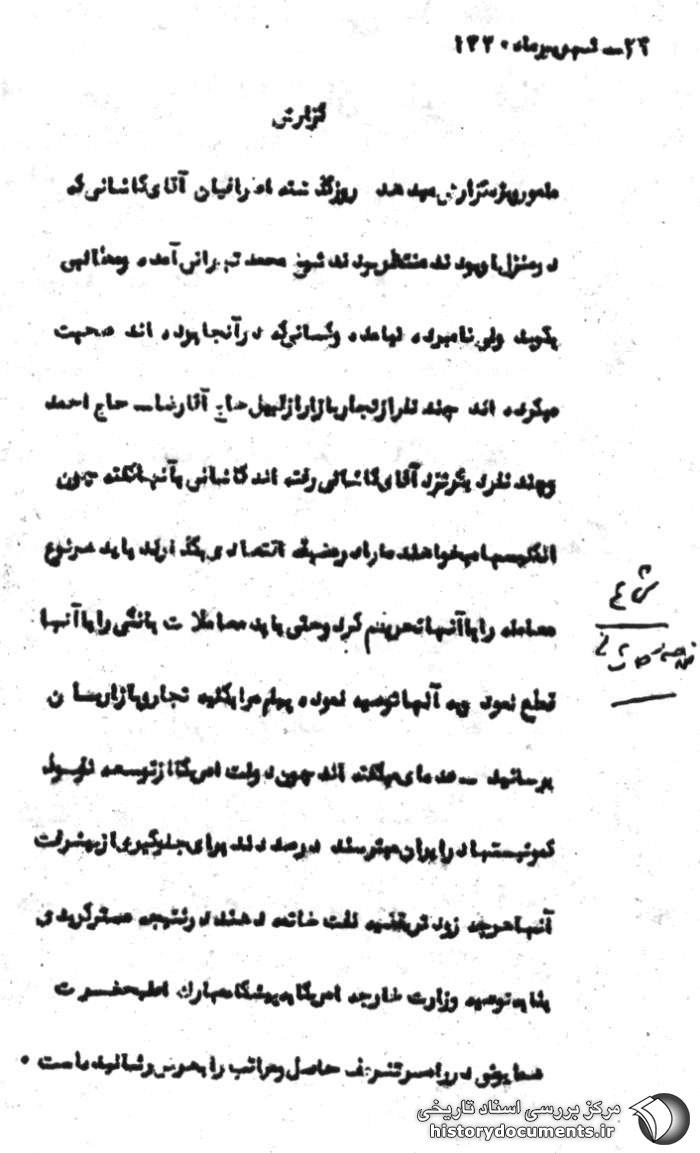 ۲۶ـ شهریورماه ۱۳۳۰
گزارش
مامور ویژه گزارش میدهد روز گذشته اطرافیان آقای کاشانی که
در منزل او بودند منتظر بودند شیخ محمد تهرانی آمده و مطالبی
بگوید ولی نامبرده نیامده و کسانی که در آنجا بوده اند صحبت
میکرده اند چند نفر از تجار بازار از قبیل حاج آقا رضا ـ حاج احمد
و چند نفر دیگر نزد آقای کاشانی رفته اند کاشانی بآنها گفته چون
انگلیسها میخواهند ما را در مضیقه اقتصادی بگذارند باید هر نوع
معامله را با آنها تحریم کرد و حتی باید معاملات بانکی را با آنها
قطع نمود و به آنها توصیه نموده پیام مرا بکلیه تجار و بازاریان
برسانید ـ عده ای میگفته اند چون دولت امریکا از توسعه نفوذ
کمونیستها در ایران میترسند درصددند برای جلوگیری از پیشرفت
آنها هرچه زودتر بقضیه نفت خاتمه دهند در نتیجه مستر گریدی
بنا به توصیه وزارت خارجه امریکا به پیشگاه مبارک اعلیحضرت
همایونی در رامسر تشریف حاصل و مراتب را بعرض رسانیده است ۰
مرکز بررسی اسناد تاریخی
historydocuments.ir